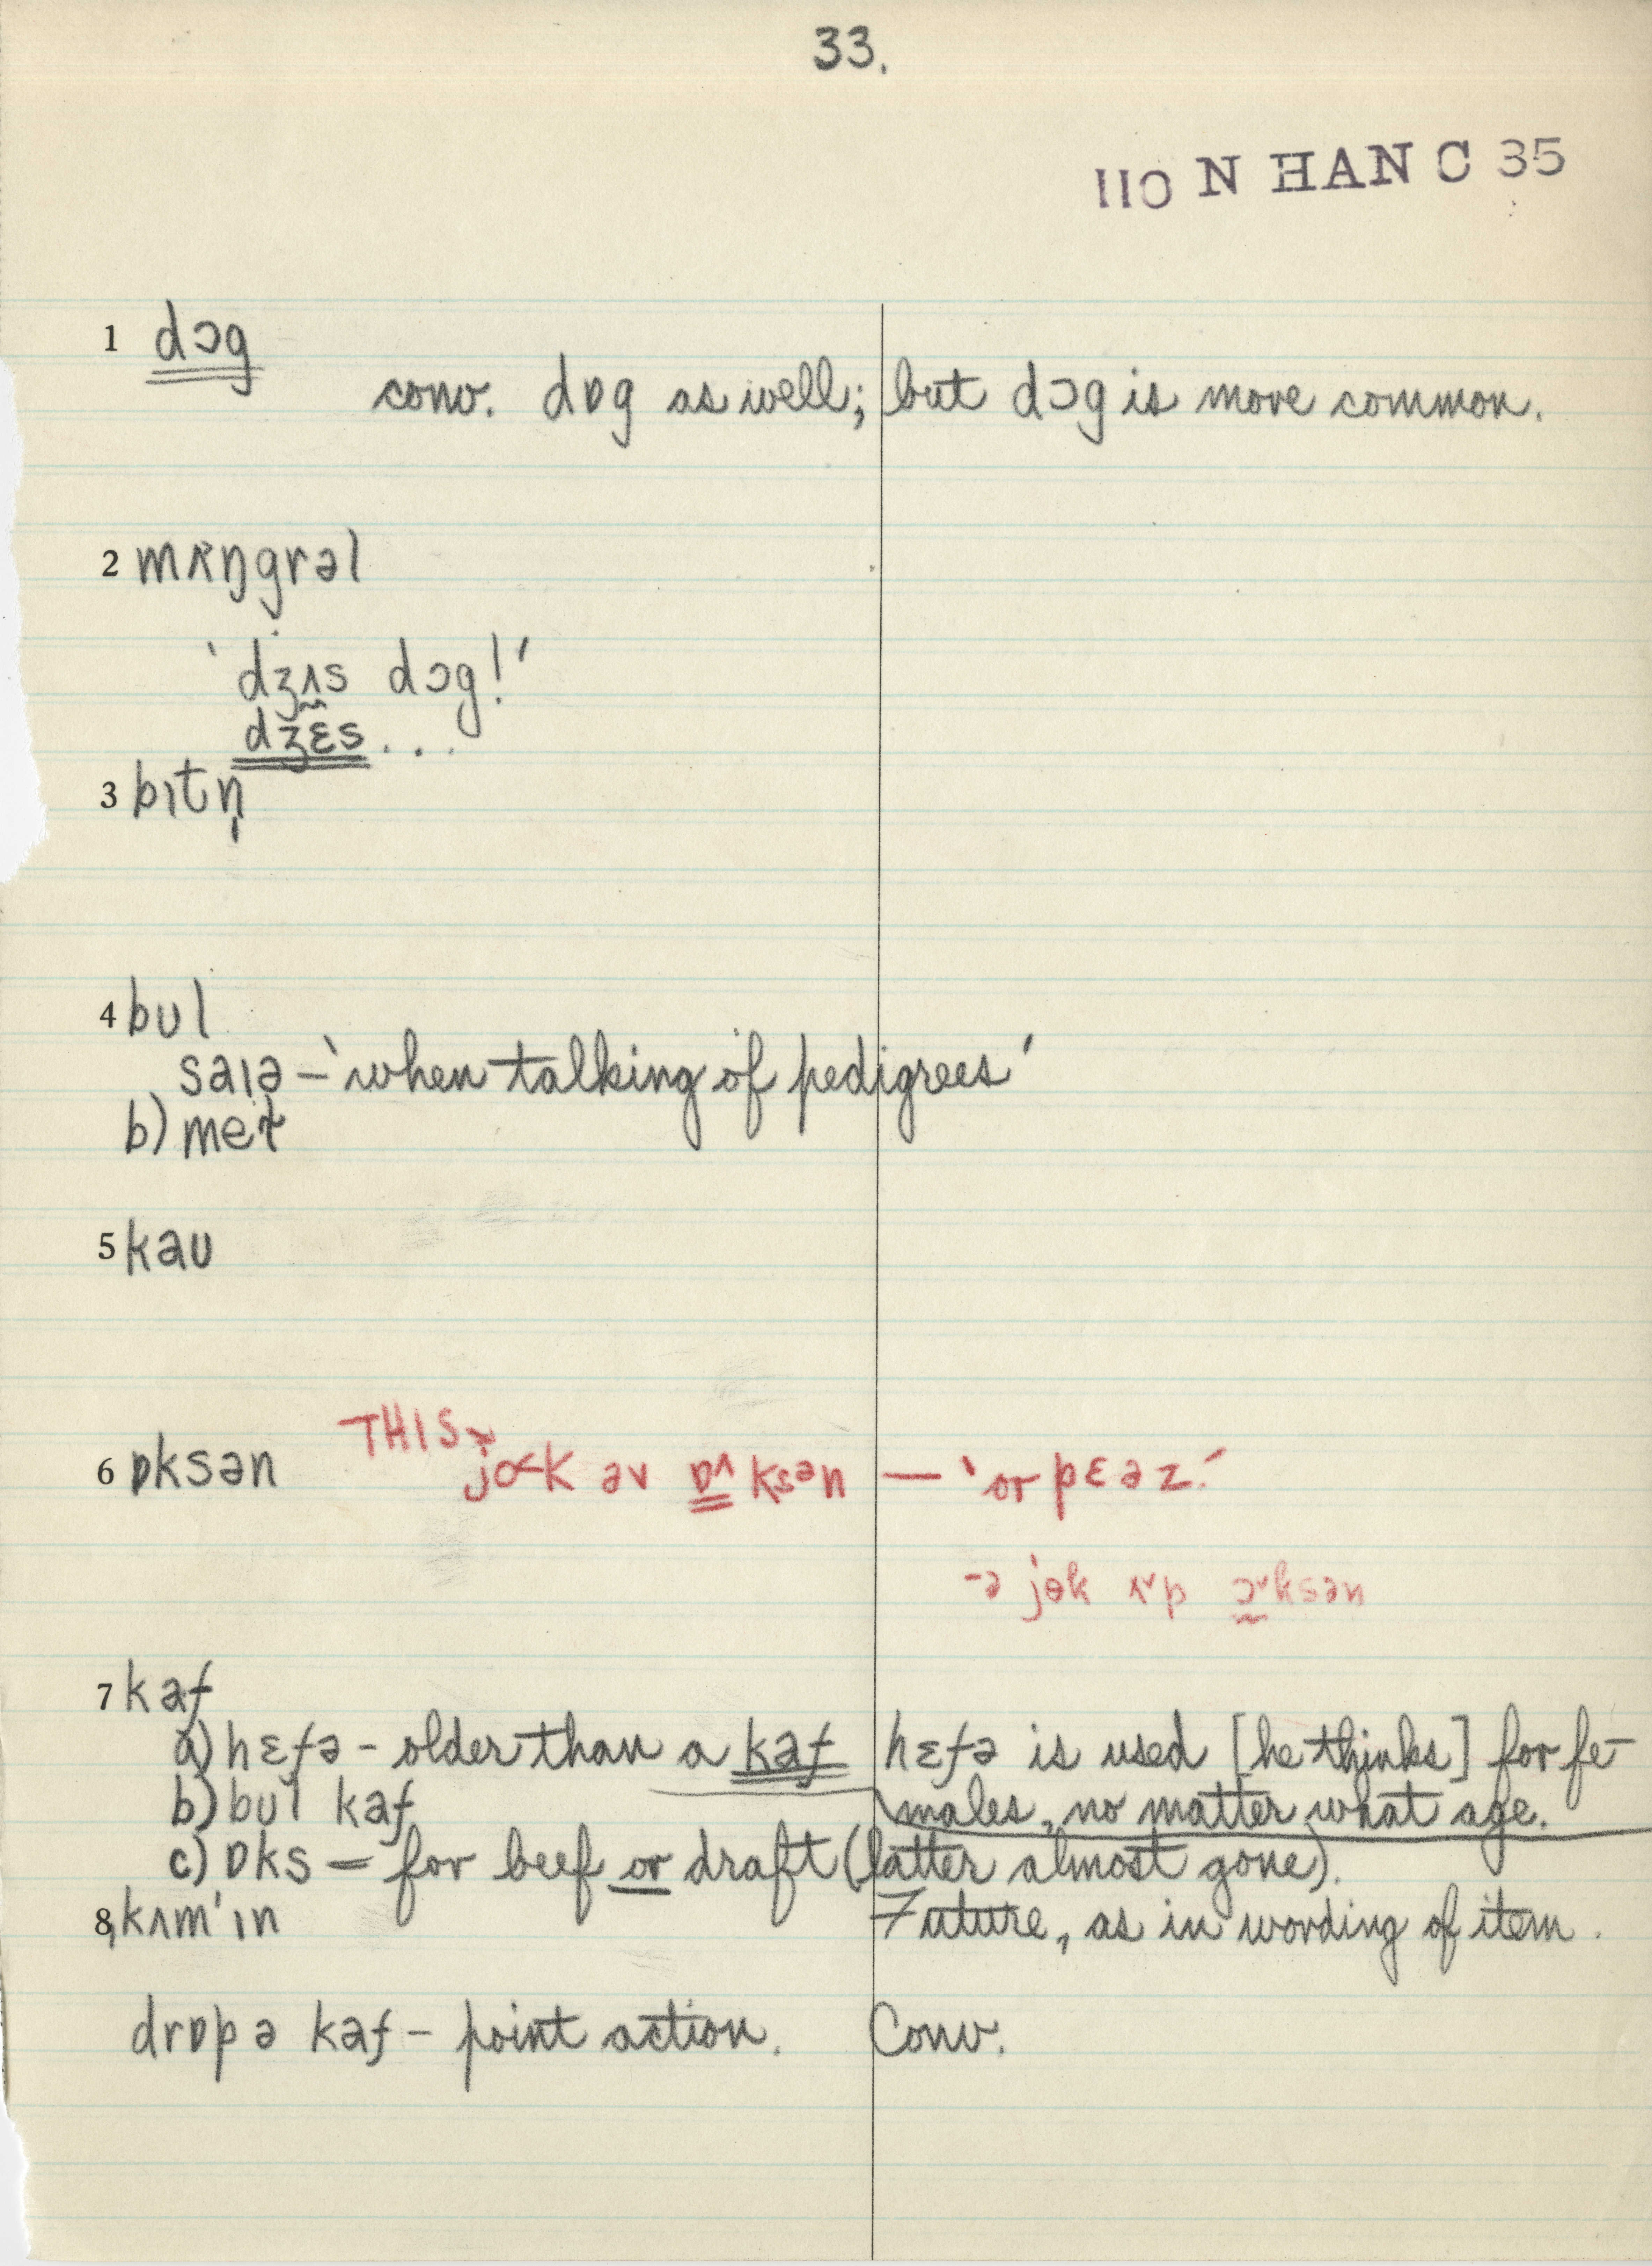 33.
110 N HAN C 35
1 dɔg
conv. dɒg as well; but dɔg is more common.
2 mʌŋgrəl
'dʒʌs dɔg!'
dʒɛs...
3 bɪtn̩
4 bʊl
saɪə – 'when talking of pedigrees'
b) meɪt
5 kaʊ
6 ɒksən THIS → jok əv ɒ^ksən — 'or pɛəz.'
-ə jɵk ʌ˅p ɔ˅ksən
7 kaf
a) hɛfə – older than a kaf hɛfə is used [he thinks] for fe-
b) bʊl kaf males, no matter what age.
c) ɒks – for beef or draft (latter almost gone).
8, kʌm'ɪn Future, as in wording of item.
drɒp ə kaf – point action. Conv.